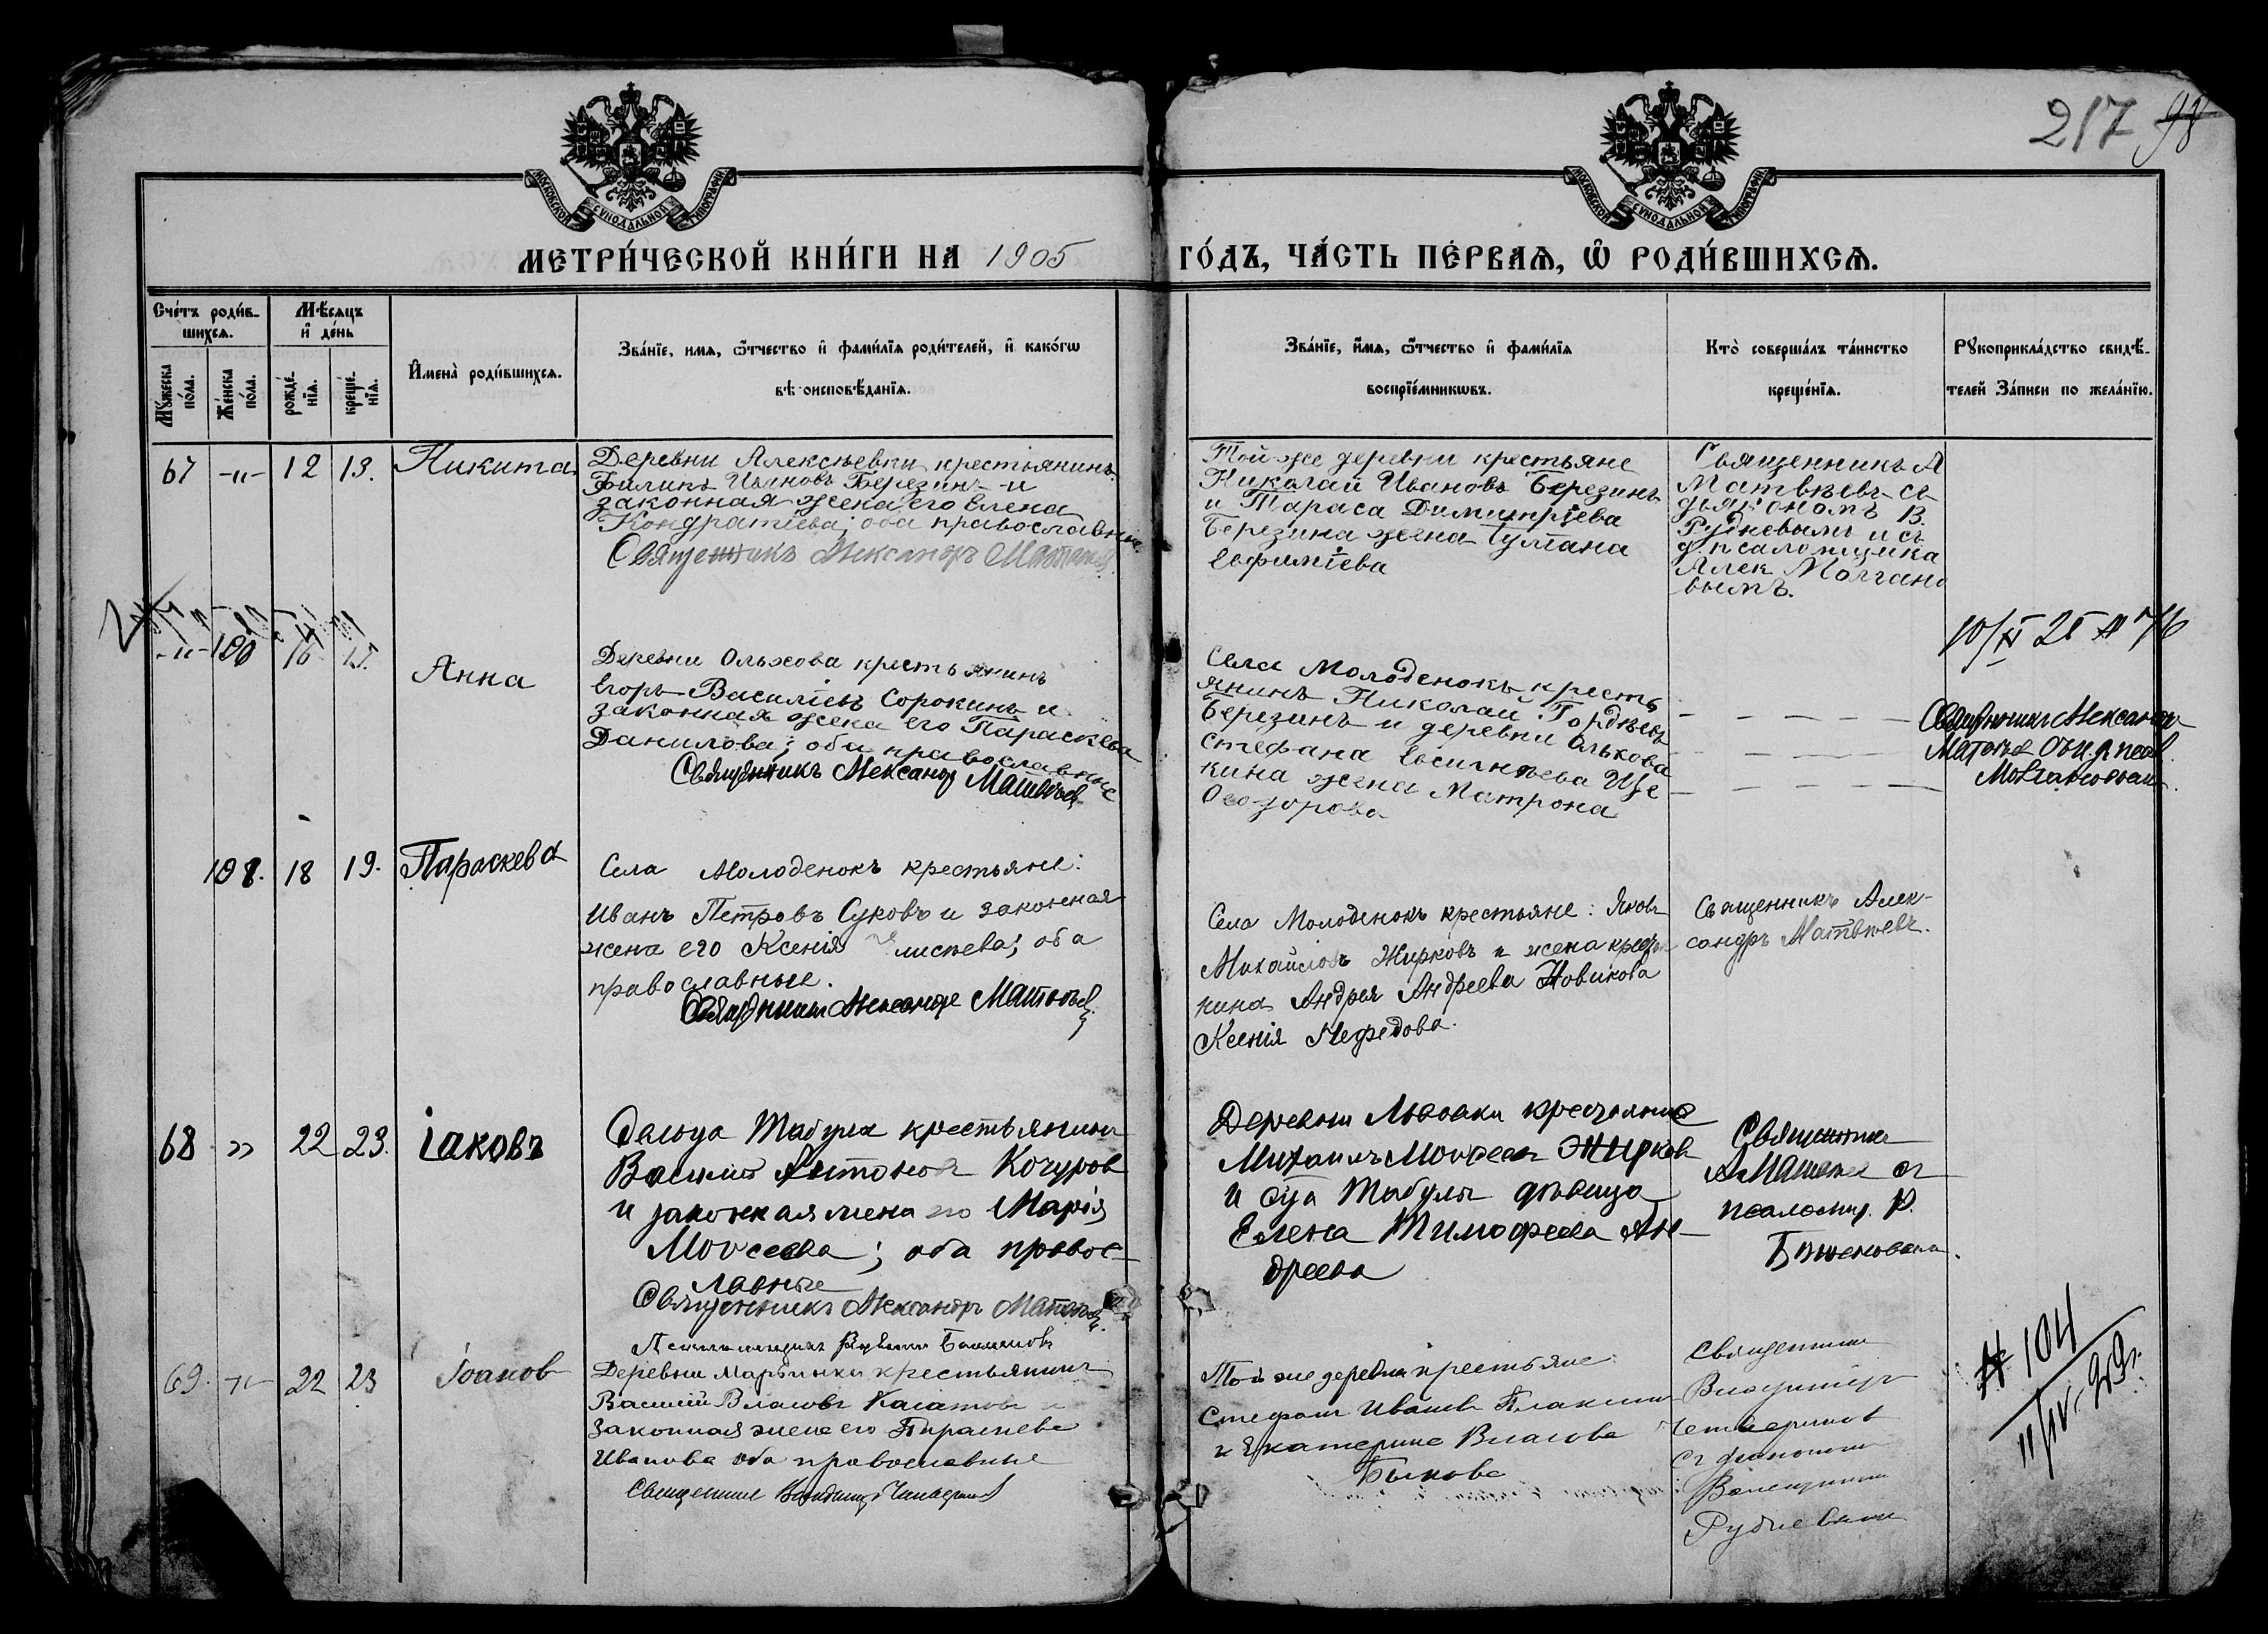 217 98
МОСКОВСКОЙ СУНОДАЛЬНОЙ ТИПОГРАФІИ
МОСКОВСКОЙ СУНОДАЛЬНОЙ ТИПОГРАФІИ
МЕТРИ́ЧЕСКОЙ КНИ́ГИ НА 1905
ГО́ДЪ, ЧА́СТЬ ПЕ́РВАѦ, Ѡ РОДИ́ВШИХСѦ.
Сче́тъ роди́в-
шихсѧ.
Мѣ́сѧцъ
и҆ де́нь
Мꙋ́жеска по́ла.
Же́нска по́ла.
рожде́нїѧ.
креще́нїѧ.
И҆мена̀ роди́вшихсѧ.
Зва́нїе, имѧ, ѻ҆́тчество и҆ фами́лїѧ роди́телей, и҆ како́гѡ
вѣ оисповѣ́данїѧ.
Зва́нїе, и҆́мѧ, ѻ҆́тчество и҆ фами́лїѧ
воспрїе́мникѡвъ.
Кто̀ соверша́лъ та́инство
креще́нїѧ.
Рꙋкоприкла́дство свидѣ́-
телей За́писи по жела́нїю.
67 -„- 12 13. Никита
Деревни Алексѣевки крестьянинъ
Филипъ Ивановъ Березинъ и
законная жена его Елена
Кондратіева; оба православные
Священникъ Александръ Матвѣевъ
Той же деревни крестьяне
Николай Ивановъ Березинъ
и Тараса Димитріева
Березина жена Іуліана
Евфиміева
Священникъ А
Матвѣевъ съ
діакономъ В.
Рудневымъ и съ
д. псаломщика
Алек Молчано
вымъ.
-„- 100 16 17. Анна
Деревни Ольхова крестьянинъ
Егоръ Василіевъ Сорокинъ и
законная жена его Параскева
Данилова; оба православные
Священникъ Александръ Матвѣевъ
Села Молоденокъ кресть
янинъ Николай Гордѣевъ
Березинъ и деревни Ольхова
Стефана
кина жена Матрона
Ѳеодорова
Священникъ Александръ
Матвѣевъ
Молчановымъ
108. 18 19. Параскева
Села Молоденокъ крестьяне:
Иванъ Петровъ Суковъ и законная
жена его Ксенія; оба
православные.
Священникъ Александръ Матвѣевъ
Села Молоденокъ крестьяне: Яковъ
Михайловъ Жирковъ и жена кресть
нина Андрея Андреева Новикова
Ксенія Нефедова.
Священникъ Алек-
сандръ Матвѣевъ.
68 „ 22 23. Іаковъ
Сельца Табула крестьянинъ
Василій Антоновъ Кочуровъ
и законная жена его Марія
Моисеева; оба правос-
лавные
Священникъ Александръ Матвѣевъ
Деревни Львовки крестьянинъ
Михаилъ Моисеевъ Жирковъ
и с-ца Табулы дѣвица
Елена Тимофеева Ан-
дреева
Священникъ
А Матвѣевъ съ
псаломщ. Р.
69. -„- 22 23 Іоаннъ
Деревни Марьинки крестьянинъ
Василій Власовъ и
законная жена его Параскева
Иванова оба православные
Священникъ Владимиръ
Той же деревни крестьяне:
Стефанъ Ивановъ
и Екатерина Власова
Быкова
Священникъ
Владимиръ
съ діакономъ
Рудневымъ
№ 104